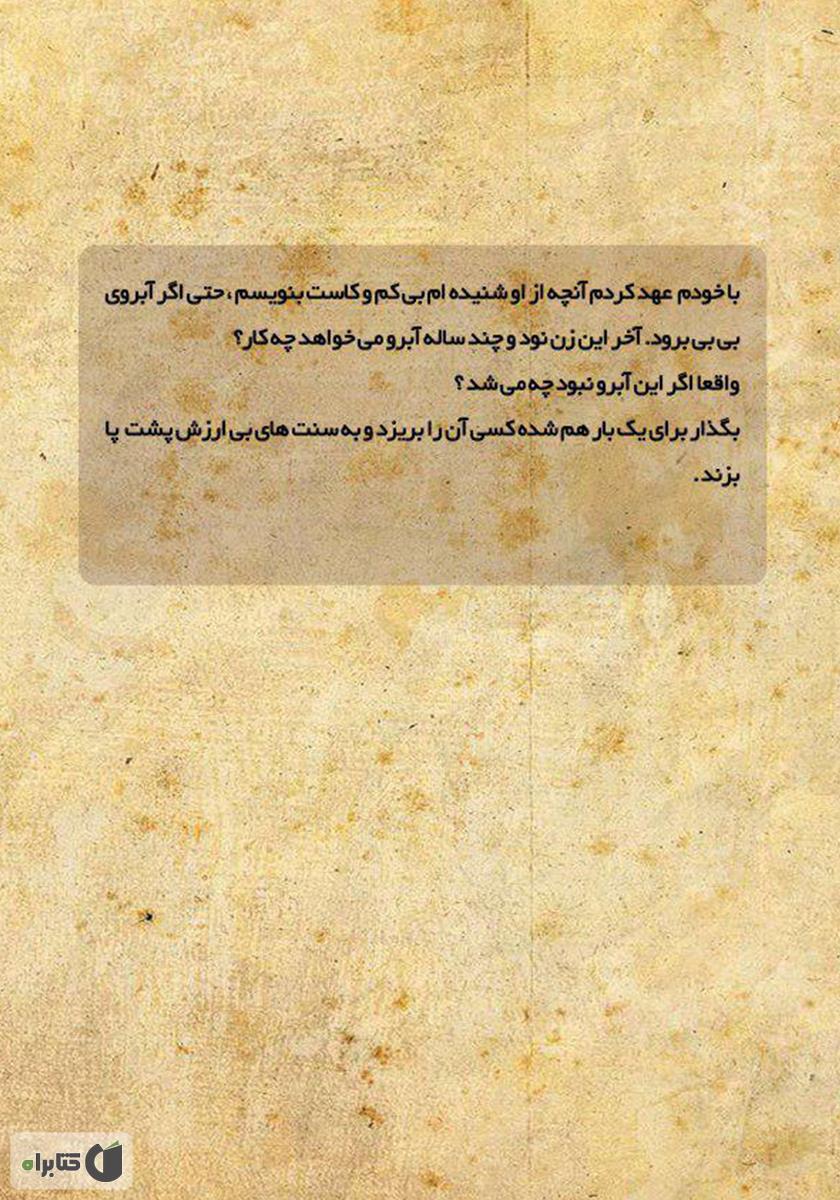 با خودم عهد کردم آنچه از او شنیده ام بی کم و کاست بنویسم ، حتی اگر آبروی
بی بی برود. آخر این زن نود و چند ساله آبرو می خواهد چه کار؟
واقعا اگر این آبرو نبود چه می شد ؟
بگذار برای یک بار هم شده کسی آن را بریزد و به سنت های بی ارزش پشت پا
بزند.
کتابراه